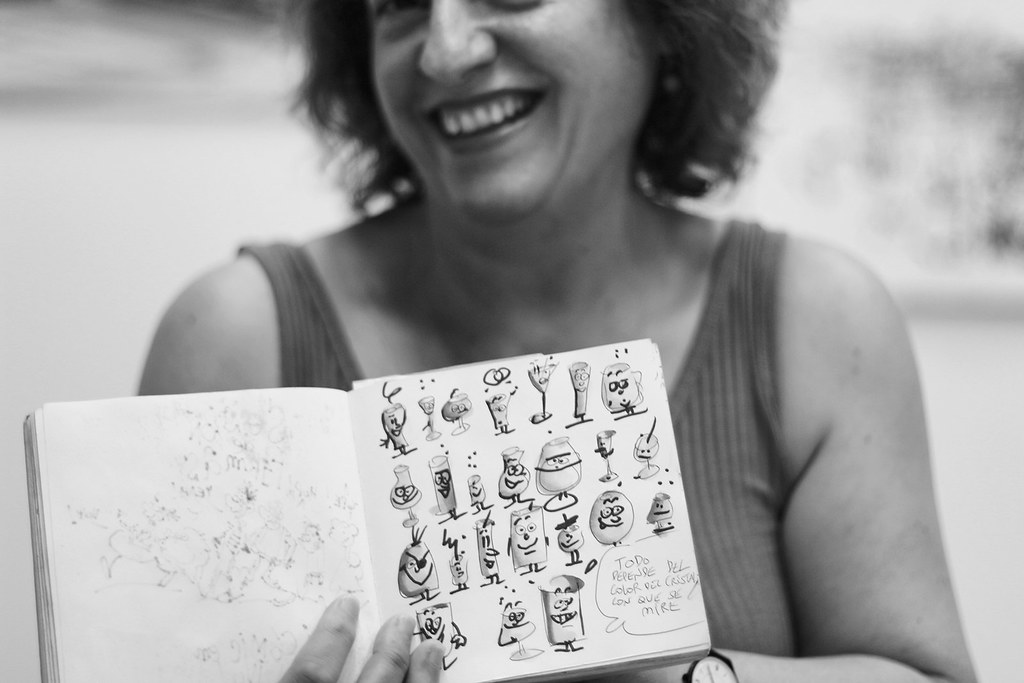 TODO
DEPENDE DEL
COLOR DEL CRISTAL
CON QUE SE
MIRE